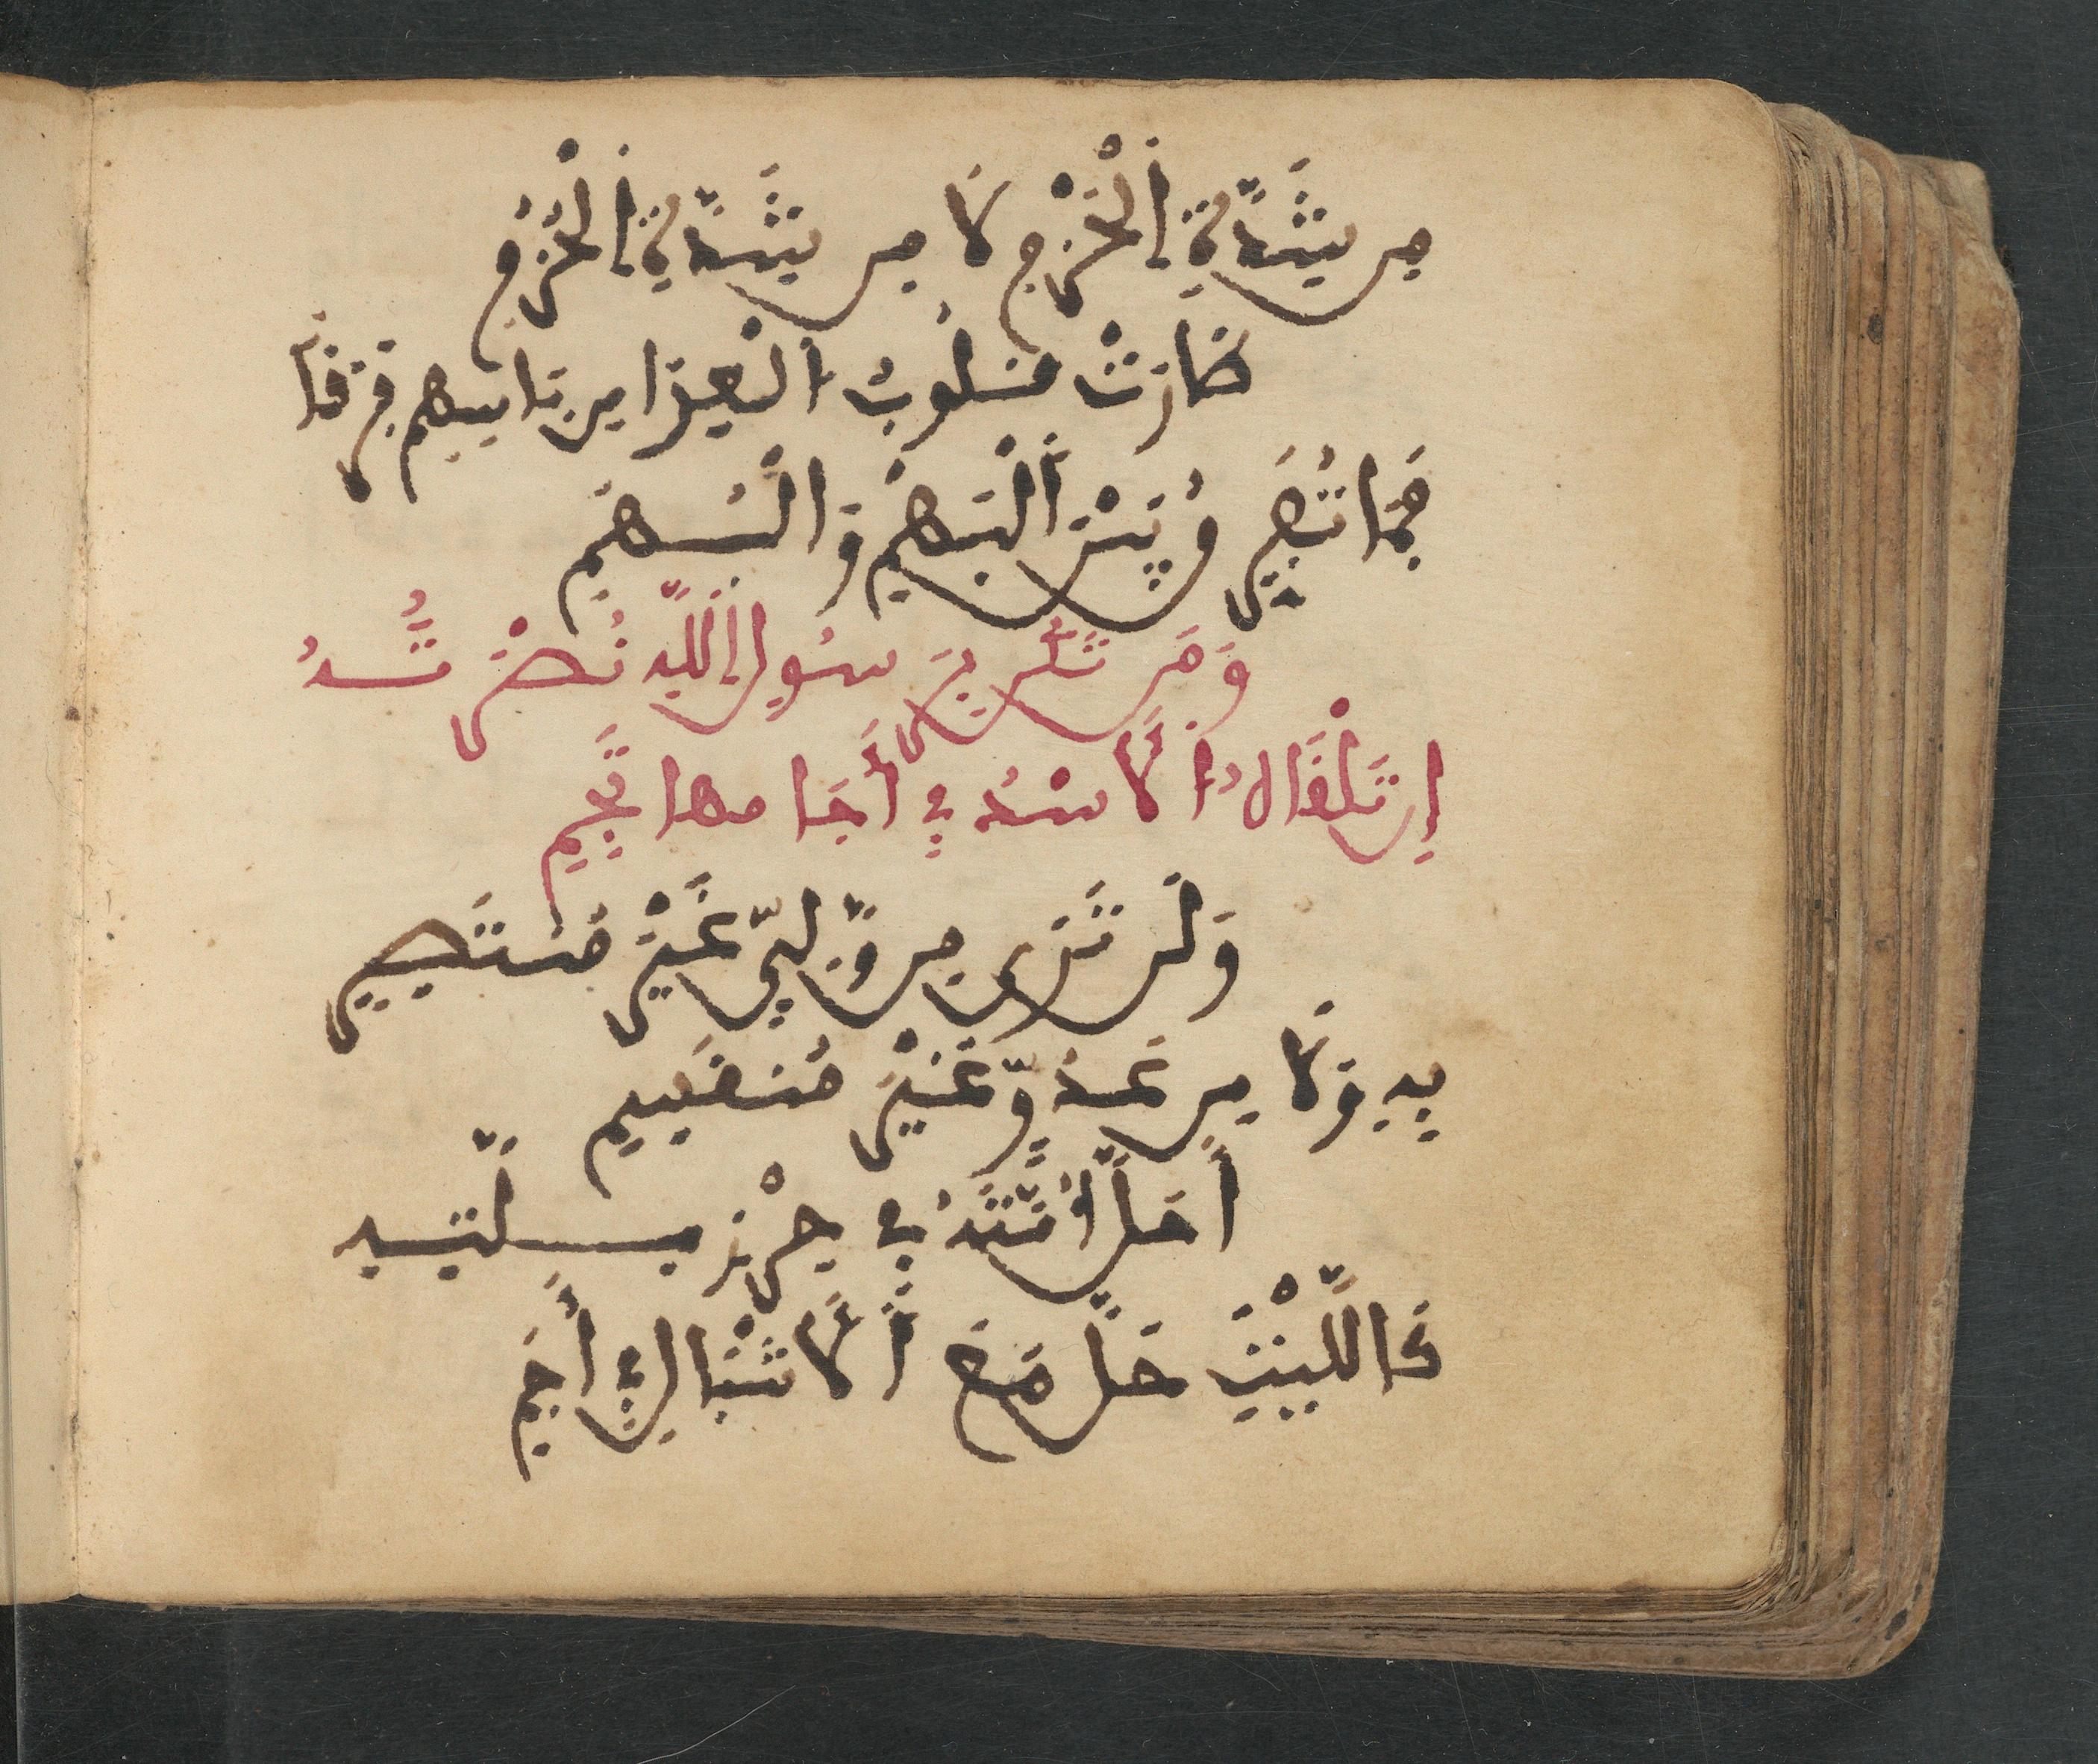 مِن شَدَّةِ اِلْحَزْمِ لَا مِن شَدَّةِ اِلْحُزُمِ
طَارَتْ قُلُوبُ اَلْعِدَا مِن بَأْسِهِم فَرَقاً
فَمَا تُفَرِّقُ بَيْنَ اَلْبَهْمِ وَالْبُهَمِ
وَمَن تَكُن بِرَسُولِ اِللَّهِ نُصْرَتُهُ
إِن تَلْقَهُ اُلَاسْدُ فِي أَجَامِهَا تَجِمِ
وَلَن تَرَى مِن وَّلِيٍّ غَيْرَ مُنتَصِرٍ
بِهِ وَلَا مِن عَدُوٍّ غَيْرَ مُنقَصِمِ
أَحَلَّ أُمَّتَهُ فِي حِرْزِ مِلَّتِهِ
كَاللَّيْثِ حَلَّ مَعَ اَلَاشْبَالِ فِي أَجَمِ